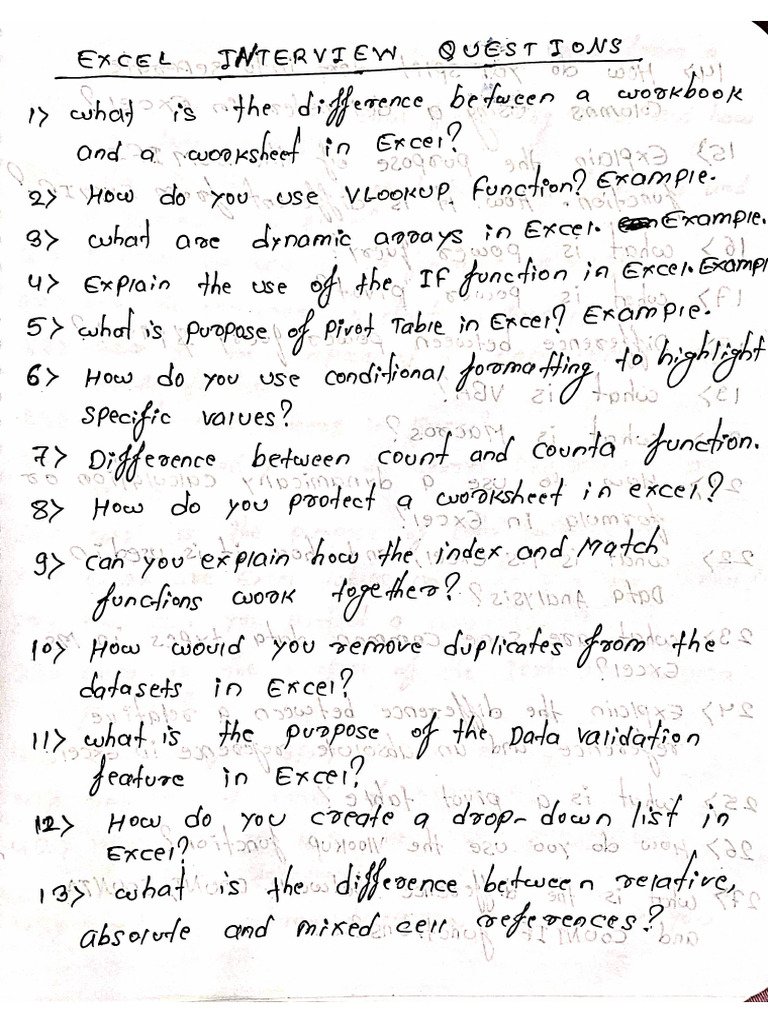 EXCEL INTERVIEW QUESTIONS
1> What is the difference between a workbook
and a worksheet in Excel?
2> How do you use VLOOKUP function? Example.
3> what are dynamic arrays in Excel. Example.
4> Explain the use of the IF function in Excel. Exampl
5> what is purpose of Pivot Table in Excel? Example.
6> How do you use conditional formatting to highlight
specific values?
7> Difference between count and counta function.
8> How do you protect a worksheet in excel?
9> can you explain how the index and Match
functions work together?
10> How would you remove duplicates from the
datasets in Excel?
11> what is the purpose of the Data validation
feature in Excel?
12> How do you create a drop-down list in
Excel?
13> what is the difference between relative,
absolute and mixed cell references?